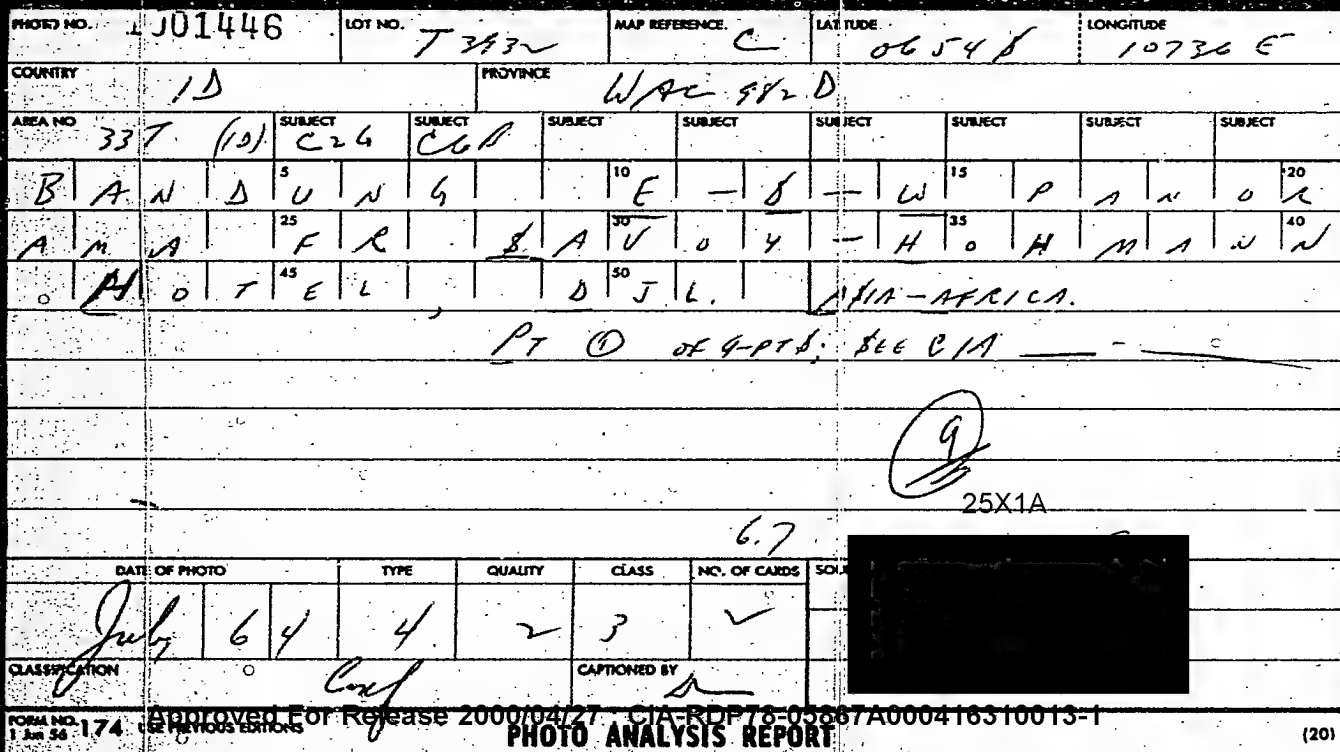 PHOTO NO. 1001446 LOT NO. T3932 MAP REFERENCE. C LATITUDE 0654 S LONGITUDE 10736 E
COUNTRY ID PROVINCE WAC 982 D
AREA NO 33T (ID) SUBJECT C2G SUBJECT CGB SUBJECT SUBJECT SUBJECT SUBJECT SUBJECT SUBJECT
BANDUNG E-S-W PANOR
AMA FR. SAVOY-HOHMANN
HOTEL, DJL. ASIA-AFRICA.
PT 1 OF 9-PTS: SEE CIA
9
25X1A
6.7
DATE OF PHOTO TYPE QUALITY CLASS NO. OF CARDS
July 64 4 2 3
CLASSIFICATION Conf CAPTIONED BY
FORM NO. 174 USE PREVIOUS EDITIONS Approved For Release 2000/04/27 : CIA-RDP78-05867A000416310013-1
1 Jun 56 PHOTO ANALYSIS REPORT (20)